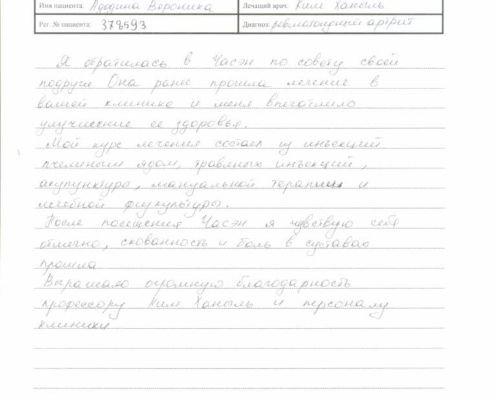 Имя пациента: Адодина Вероника Лечащий врач: Ким Ханыль
Рег.№ пациента: 378593 Диагноз: ревматоидный артрит
Я обратилась в Часэн по совету своей
подруги Она ранее прошла лечение в
вашей клинике и меня впечатлило
улучшение ее здоровья.
Мой курс лечения состоял из инъекций
пчелиным ядом, травяных инъекций,
акупунктуры, мануальной терапии и
лечебной физкультуры.
После посещения Часэн я чувствую себя
отлично, скованность и боль в суставах
прошла
Выражаю огромную благодарность
профессору Ким Ханыль и персоналу
клиники